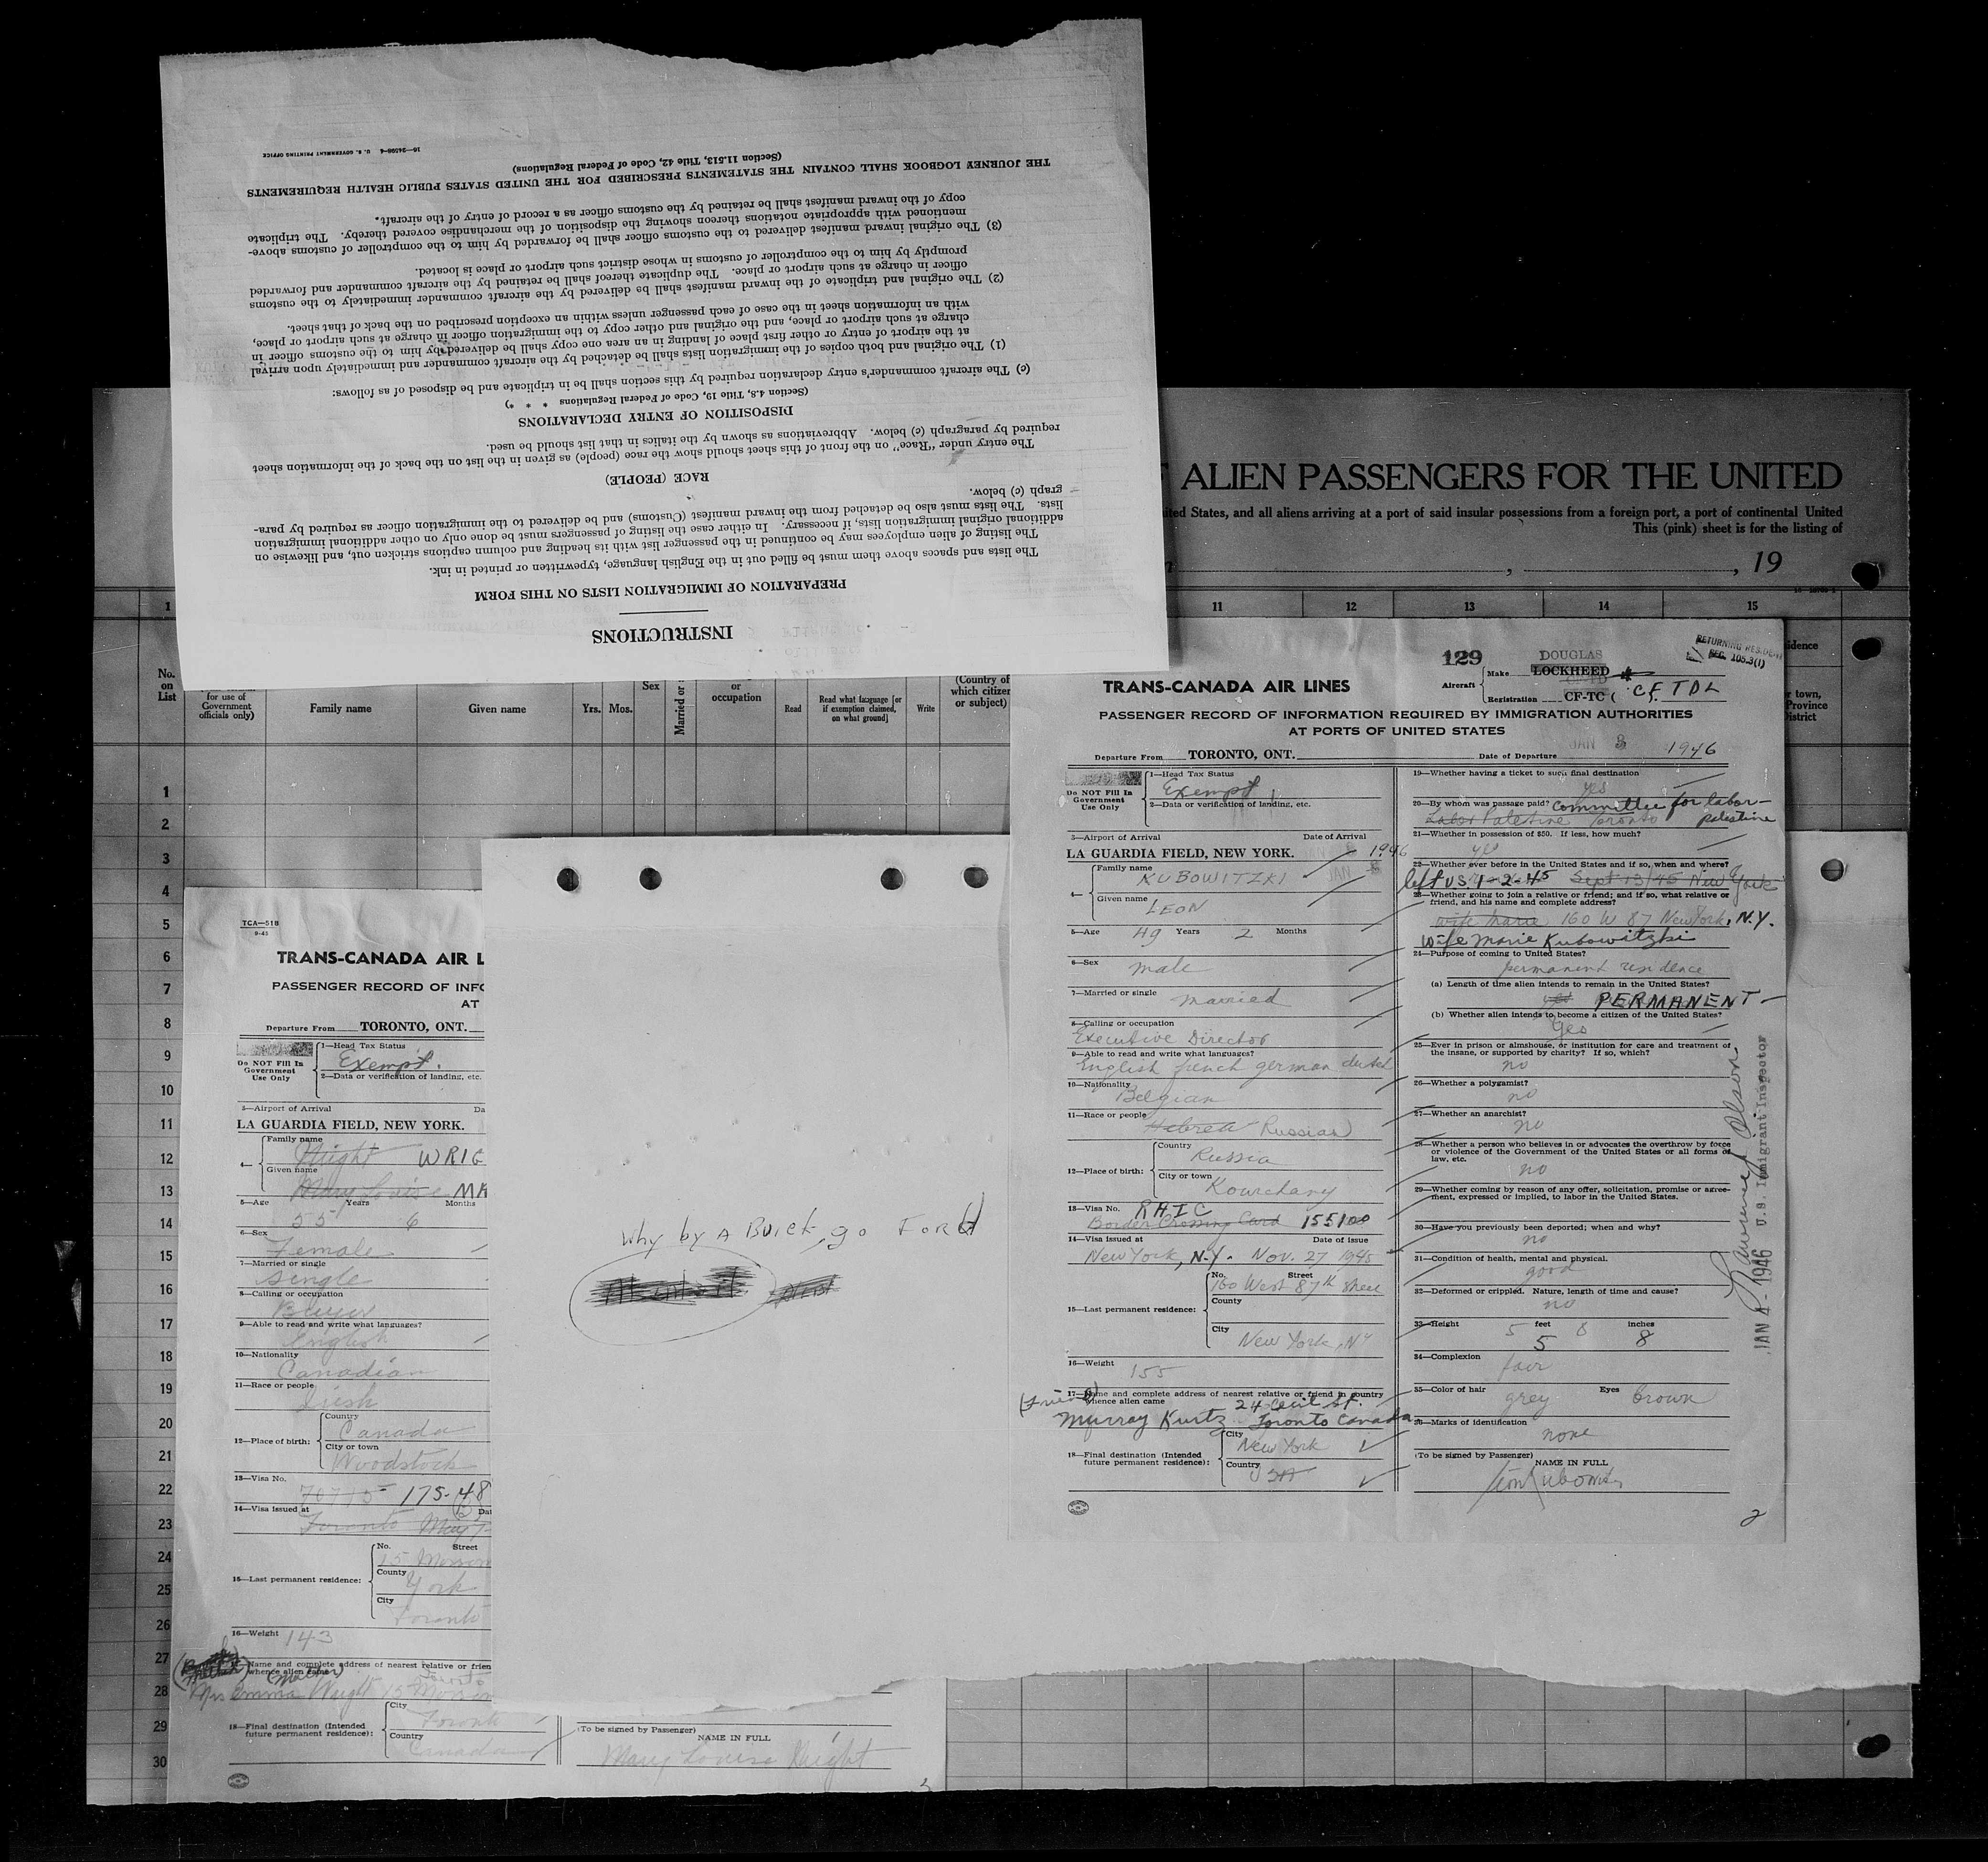 INSTRUCTIONS
PREPARATION OF IMMIGRATION LISTS ON THIS FORM
The lists and spaces above them must be filled out in the English language, typewritten or printed in ink.
The listing of alien employees may be continued in the passenger list with its heading and column captions stricken out, and likewise on
additional original immigration lists, if necessary. In either case the listing of passengers must be done only on other additional immigration
lists. The lists must also be detached from the inward manifest (Customs) and be delivered to the immigration officer as required by para-
graph (c) below.
RACE (PEOPLE)
The entry under "Race" on the front of this sheet should show the race (people) as given in the list on the back of the information sheet
required by paragraph (c) below. Abbreviations as shown by the italics in that list should be used.
DISPOSITION OF ENTRY DECLARATIONS
(Section 4.8, Title 19, Code of Federal Regulations * * *)
(c) The aircraft commander's entry declaration required by this section shall be in triplicate and be disposed of as follows:
(1) The original and both copies of the immigration lists shall be detached by the aircraft commander and immediately upon arrival
at the airport of entry or other first place of landing in an area one copy shall be delivered by him to the customs officer in
charge at such airport or place, and the original and other copy to the immigration officer in charge at such airport or place,
with an information sheet in the case of each passenger unless within an exception prescribed on the back of that sheet.
(2) The original and triplicate of the inward manifest shall be delivered by the aircraft commander immediately to the customs
officer in charge at such airport or place. The duplicate thereof shall be retained by the aircraft commander and forwarded
promptly by him to the comptroller of customs in whose district such airport or place is located.
(3) The original inward manifest delivered to the customs officer shall be forwarded by him to the comptroller of customs above-
mentioned with appropriate notations thereon showing the disposition of the merchandise covered thereby. The triplicate
copy of the inward manifest shall be retained by the customs officer as a record of entry of the aircraft.
THE JOURNEY LOGBOOK SHALL CONTAIN THE STATEMENTS PRESCRIBED FOR THE UNITED STATES PUBLIC HEALTH REQUIREMENTS
(Section 11.513, Title 42, Code of Federal Regulations)
16—24598-4 U. S. GOVERNMENT PRINTING OFFICE
ALIEN PASSENGERS FOR THE UNITED
ited States, and all aliens arriving at a port of said insular possessions from a foreign port, a port of continental United
This (pink) sheet is for the listing of
, , 19
1 11 12 13 14 15
No. on List
for use of Government officials only)
Family name Given name Yrs. Mos. Sex Married or s
or occupation
Read Read what language [or if exemption claimed, on what ground] Write
(Country of which citizen or subject)
idence
r town, Province District
1
2
3
4
5
6
7
8
9
10
11
12
13
14
15
16
17
18
19
20
21
22
23
24
25
26
27
28
29
30
TCA—518
9-45
TRANS-CANADA AIR L
PASSENGER RECORD OF INFO
AT
Departure From TORONTO, ONT.
Do NOT Fill In Government Use Only
1—Head Tax Status
Exempt.
2—Data or verification of landing, etc.
3—Airport of Arrival Da
LA GUARDIA FIELD, NEW YORK.
4— Family name
Wright WRIG
Given name
Mary Louise MA
5—Age 55 Years 6 Months
6—Sex
Female
7—Married or single
single
8—Calling or occupation
Buyer
9—Able to read and write what languages?
English
10—Nationality
Canadian
11—Race or people
Irish
12—Place of birth: Country
Canada
City or town
Woodstock
13—Visa No.
70715 175-48
14—Visa issued at Da
Toronto May
15—Last permanent residence: No. Street
15
County
York
City
Toronto
16—Weight 143
17—Name and complete address of nearest relative or frien
whence alien came
(Mother)
Mrs Emma Wright 15
18—Final destination (Intended future permanent residence): City
Toronto
Country
Canada
(To be signed by Passenger)
NAME IN FULL
Mary Louise Wright
Why by A Buick, go Ford
129
DOUGLAS
Aircraft Make LOCKHEED
Registration CF-TC ( CF. TDL
RETURNING RESIDENT
SEC. 105.3(1)
TRANS-CANADA AIR LINES
PASSENGER RECORD OF INFORMATION REQUIRED BY IMMIGRATION AUTHORITIES
AT PORTS OF UNITED STATES
Departure From TORONTO, ONT. Date of Departure JAN 3 1946
Do NOT Fill In Government Use Only
1—Head Tax Status
Exempt
2—Data or verification of landing, etc.
3—Airport of Arrival Date of Arrival
LA GUARDIA FIELD, NEW YORK. JAN 1946
4— Family name
KUBOWITZKI
Given name
LEON
5—Age 49 Years 2 Months
6—Sex
male
7—Married or single married
8—Calling or occupation
Executive Director
9—Able to read and write what languages?
English french german dutch
10—Nationality
Belgian
11—Race or people
Hebrew Russian
12—Place of birth: Country
Russia
City or town
Kourchany
13—Visa No. RHIC
Border Crossing Card 155100
14—Visa issued at Date of issue
New York, N.Y. Nov. 27 1945
15—Last permanent residence: No. Street
160 West 87th Street
County
City
New York, NY
16—Weight
155
17—Name and complete address of nearest relative or friend in country
whence alien came
(Friend) 24 Cecil St.
Murray Kurtz Toronto Canada
18—Final destination (Intended future permanent residence): City
New York
Country
USA
19—Whether having a ticket to such final destination
yes
20—By whom was passage paid? Committee for labor-
Labor Palestine Toronto palestine
21—Whether in possession of $50. If less, how much?
yes
22—Whether ever before in the United States and if so, when and where?
left US 1-2-45 Sept 13/45 New York
23—Whether going to join a relative or friend; and if so, what relative or
friend, and his name and complete address?
wife Marie 160 W 87 New York, N.Y.
wife Marie Kubowitzki
24—Purpose of coming to United States?
permanent residence
(a) Length of time alien intends to remain in the United States?
yes PERMANENT
(b) Whether alien intends to become a citizen of the United States?
yes
25—Ever in prison or almshouse, or institution for care and treatment of
the insane, or supported by charity? If so, which?
no
26—Whether a polygamist?
no
27—Whether an anarchist?
no
28—Whether a person who believes in or advocates the overthrow by force
or violence of the Government of the United States or all forms of
law, etc.
no
29—Whether coming by reason of any offer, solicitation, promise or agree-
ment, expressed or implied, to labor in the United States.
30—Have you previously been deported; when and why?
no
31—Condition of health, mental and physical.
good
32—Deformed or crippled. Nature, length of time and cause?
no
33—Height 5 feet 8 inches
5 8
34—Complexion
fair
35—Color of hair grey Eyes brown
36—Marks of identification
none
(To be signed by Passenger)
NAME IN FULL
JAN 4 - 1946 U.S. Immigrant Inspector
2